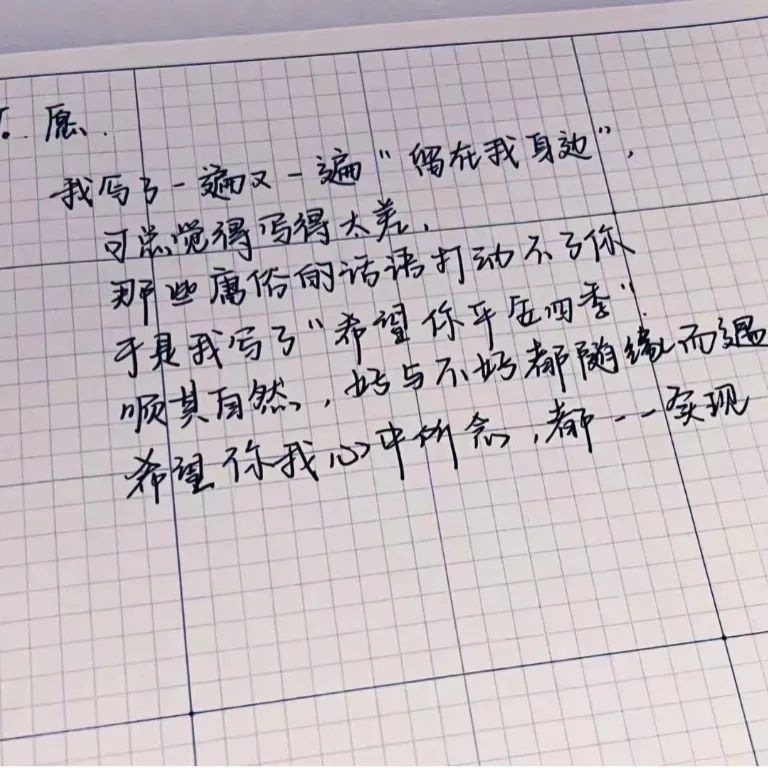 愿.
我写了一遍又一遍“留在我身边”,
可总觉得写得太差,
那些庸俗的话语打动不了你
于是我写了“希望你平安四季”.
顺其自然,好与不好都随缘而遇
希望你我心中所念,都一一实现